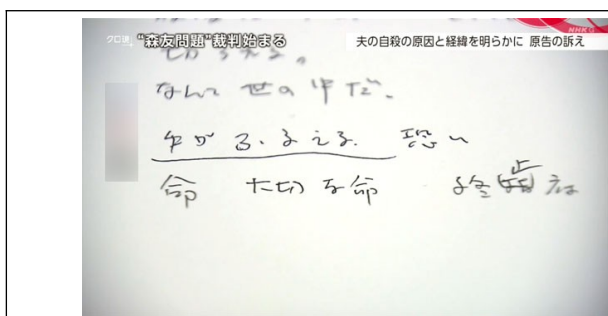 クロ現+ "森友問題"裁判始まる
夫の自殺の原因と経緯を明らかに 原告の訴え
NHK G
なんて 世の中だ。
手がふるえる。恐い
命 大切な命 終止